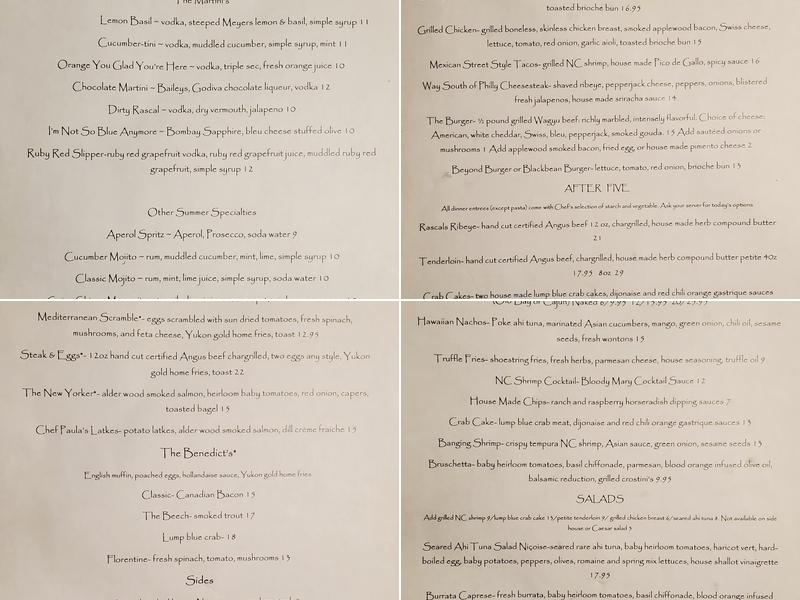 The Martini's
Lemon Basil ~ vodka, steeped Meyers lemon & basil, simple syrup 11
Cucumber-tini ~ vodka, muddled cucumber, simple syrup, mint 11
Orange You Glad You're Here ~ vodka, triple sec, fresh orange juice 10
Chocolate Martini ~ Baileys, Godiva chocolate liqueur, vodka 12
Dirty Rascal ~ vodka, dry vermouth, jalapeno 10
I'm Not So Blue Anymore ~ Bombay Sapphire, bleu cheese stuffed olive 10
Ruby Red Slipper-ruby red grapefruit vodka, ruby red grapefruit juice, muddled ruby red
grapefruit, simple syrup 12
Other Summer Specialties
Aperol Spritz ~ Aperol, Prosecco, soda water 9
Cucumber Mojito ~ rum, muddled cucumber, mint, lime, simple syrup 10
Classic Mojito ~ rum, mint, lime juice, simple syrup, soda water 10
toasted brioche bun 16.95
Grilled Chicken- grilled boneless, skinless chicken breast, smoked applewood bacon, Swiss cheese,
lettuce, tomato, red onion, garlic aioli, toasted brioche bun 15
Mexican Street Style Tacos- grilled NC shrimp, house made Pico de Gallo, spicy sauce 16
Way South of Philly Cheesesteak- shaved ribeye, pepperjack cheese, peppers, onions, blistered
fresh jalapenos, house made sriracha sauce 14
The Burger- ½ pound grilled Wagyu beef: richly marbled, intensely flavorful. Choice of cheese:
American, white cheddar, Swiss, bleu, pepperjack, smoked gouda. 15 Add sautéed onions or
mushrooms 1 Add applewood smoked bacon, fried egg, or house made pimento cheese 2
Beyond Burger or Blackbean Burger- lettuce, tomato, red onion, brioche bun 13
AFTER FIVE
All dinner entrees (except pasta) come with Chef's selection of starch and vegetable. Ask your server for today's options
Rascals Ribeye- hand cut certified Angus beef 12 oz, chargrilled, house made herb compound butter
21
Tenderloin- hand cut certified Angus beef, chargrilled, house made herb compound butter petite 4oz
17.95 8oz 29
Crab Cakes- two house made lump blue crab cakes, dijonaise and red chili orange gastrique sauces
Mediterranean Scramble*- eggs scrambled with sun dried tomatoes, fresh spinach,
mushrooms, and feta cheese, Yukon gold home fries, toast 12.95
Steak & Eggs*- 12oz hand cut certified Angus beef chargrilled, two eggs any style, Yukon
gold home fries, toast 22
The New Yorker*- alder wood smoked salmon, heirloom baby tomatoes, red onion, capers,
toasted bagel 15
Chef Paula's Latkes- potato latkes, alder wood smoked salmon, dill crème fraiche 15
The Benedict's*
English muffin, poached eggs, hollandaise sauce, Yukon gold home fries
Classic- Canadian Bacon 15
The Beech- smoked trout 17
Lump blue crab- 18
Florentine- fresh spinach, tomato, mushrooms 13
Sides
Hawaiian Nachos- Poke ahi tuna, marinated Asian cucumbers, mango, green onion, chili oil, sesame
seeds, fresh wontons 15
Truffle Fries- shoestring fries, fresh herbs, parmesan cheese, house seasoning, truffle oil 9
NC Shrimp Cocktail- Bloody Mary Cocktail Sauce 12
House Made Chips- ranch and raspberry horseradish dipping sauces 7
Crab Cake- lump blue crab meat, dijonaise and red chili orange gastrique sauces 15
Banging Shrimp- crispy tempura NC shrimp, Asian sauce, green onion, sesame seeds 13
Bruschetta- baby heirloom tomatoes, basil chiffonade, parmesan, blood orange infused olive oil,
balsamic reduction, grilled crostini's 9.95
SALADS
Add grilled NC shrimp 9/lump blue crab cake 13/petite tenderloin 9/ grilled chicken breast 6/seared ahi tuna 8. Not available on side
house or Caesar salad 5
Seared Ahi Tuna Salad Niçoise-seared rare ahi tuna, baby heirloom tomatoes, haricot vert, hard-
boiled egg, baby potatoes, peppers, olives, romaine and spring mix lettuces, house shallot vinaigrette
17.95
Burrata Caprese- fresh burrata, baby heirloom tomatoes, basil chiffonade, blood orange infused